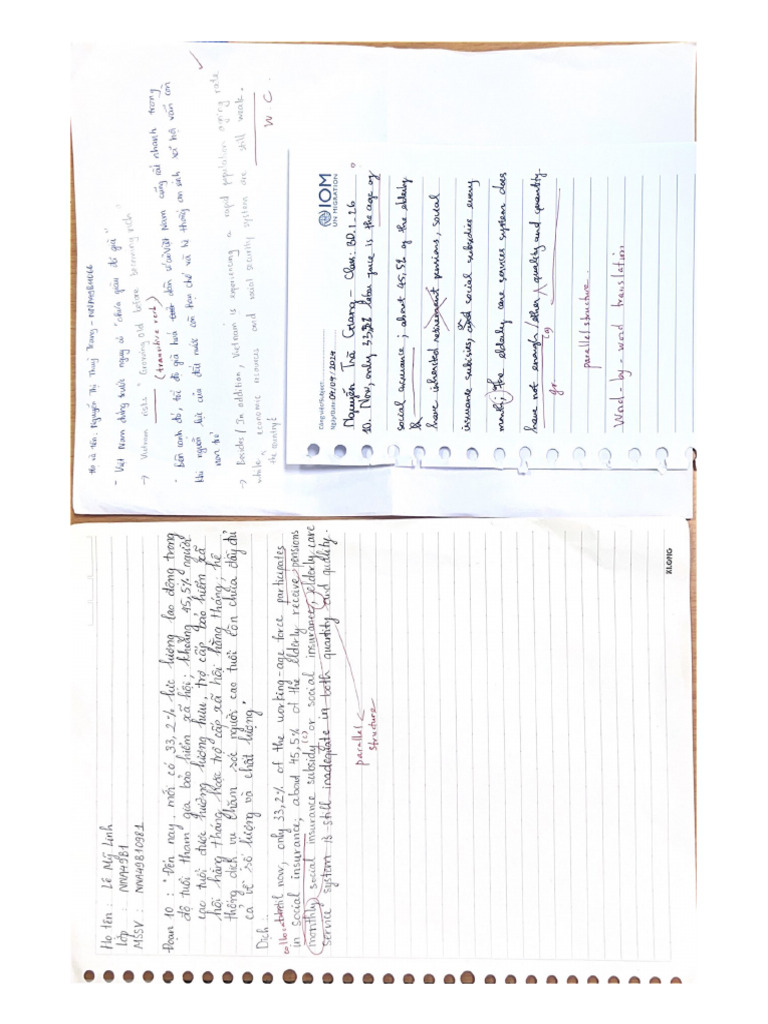 Họ và tên: Nguyễn Thị Thuỳ Trang - NNA49B11066
- Việt Nam đứng trước nguy cơ "chưa giàu đã già"
→ Vietnam risks "Growing old before becoming rich"
(transitive verb)
• Bên cạnh đó, tốc độ già hoá dân số ở Việt Nam cũng rất nhanh trong
khi nguồn lực của đất nước còn hạn chế và hệ thống an sinh xã hội vẫn còn
non trẻ
→ Besides / In addition, Vietnam is experiencing a rapid population aging rate
while economic resources and social security system are still weak.
the country's
W.C.
IOM
UN MIGRATION
Ngày/Date: 09/09/2024
Nguyễn Trà Giang - Class: BD.1-26
10. Now, only 33,2% labor force is the age of
social insurance; about 45,5% of the elderly
have inherited retirement pensions, social
insurance subsidies, and social subsidies every
month; the elderly care services system does
have not enough / other quality and quantity.
(a)
gr
parallel structure.
Word-by-word translation
Họ tên: Lê Mỹ Linh
Lớp: NNA49B1
MSSV: NNA49B10981
Đoạn 10: "Đến nay, mới có 33,2% lực lượng lao động trong
độ tuổi tham gia bảo hiểm xã hội; khoảng 45,5% người
cao tuổi được hưởng lương hưu, trợ cấp bảo hiểm xã
hội hàng tháng, hoặc trợ cấp xã hội hàng tháng; hệ
thống dịch vụ chăm sóc người cao tuổi còn chưa đầy đủ
cả về số lượng và chất lượng."
Dịch:
collocation
Until now, only 33,2% of the working-age force participates
in social insurance; about 45,5% of the elderly receive pensions
(c)
monthly social insurance subsidy or social insurance; elderly care
service system is still inadequate in both quantity and quality.
parallel
structure
KLONG